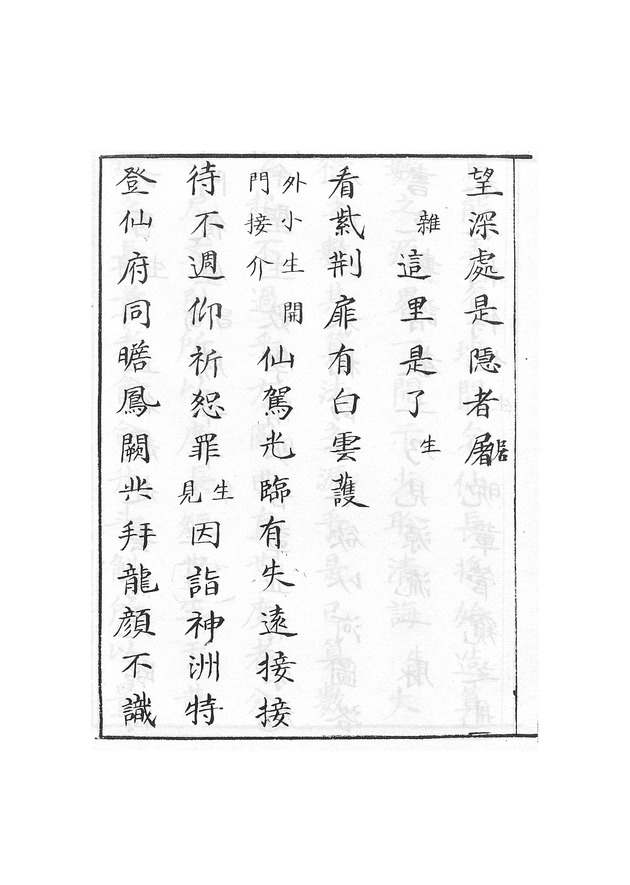 望深處是隱者居
雜這里是了生
看紫荆扉有白雲護
外小生開門接介仙駕光臨有失遠接接
待不週仰祈恕罪生見因詣神洲特
登仙府同瞻鳳闕共拜龍顔不識